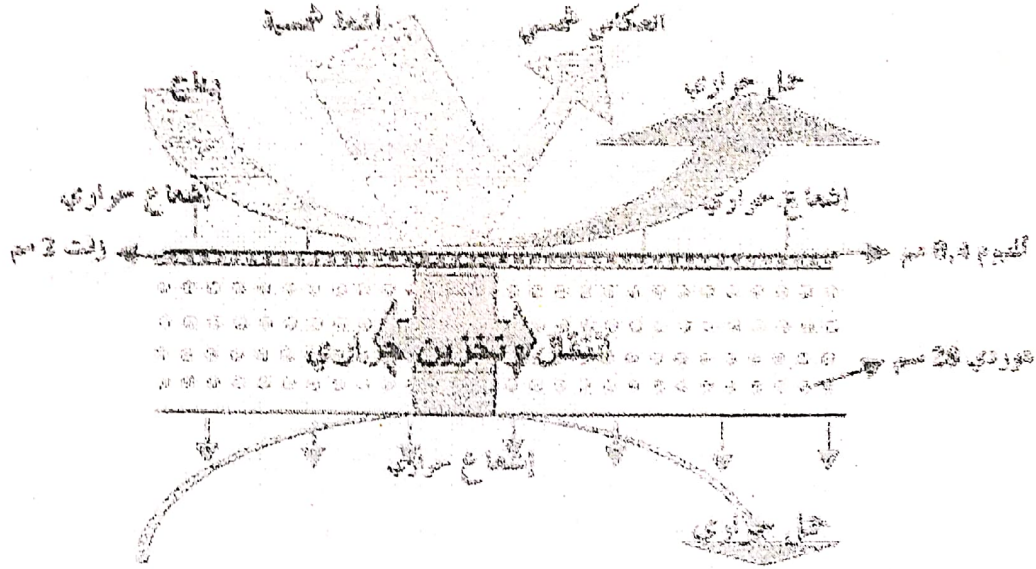 أشعة شمسية
انعكاس شمسي
رياح
حمل حراري
إشعاع حراري
إشعاع حراري
زفت 2 سم
ألمنيوم 0,4 سم
انتقال وتخزين حراري
هوردي 28 سم
إشعاع حراري
حمل حراري